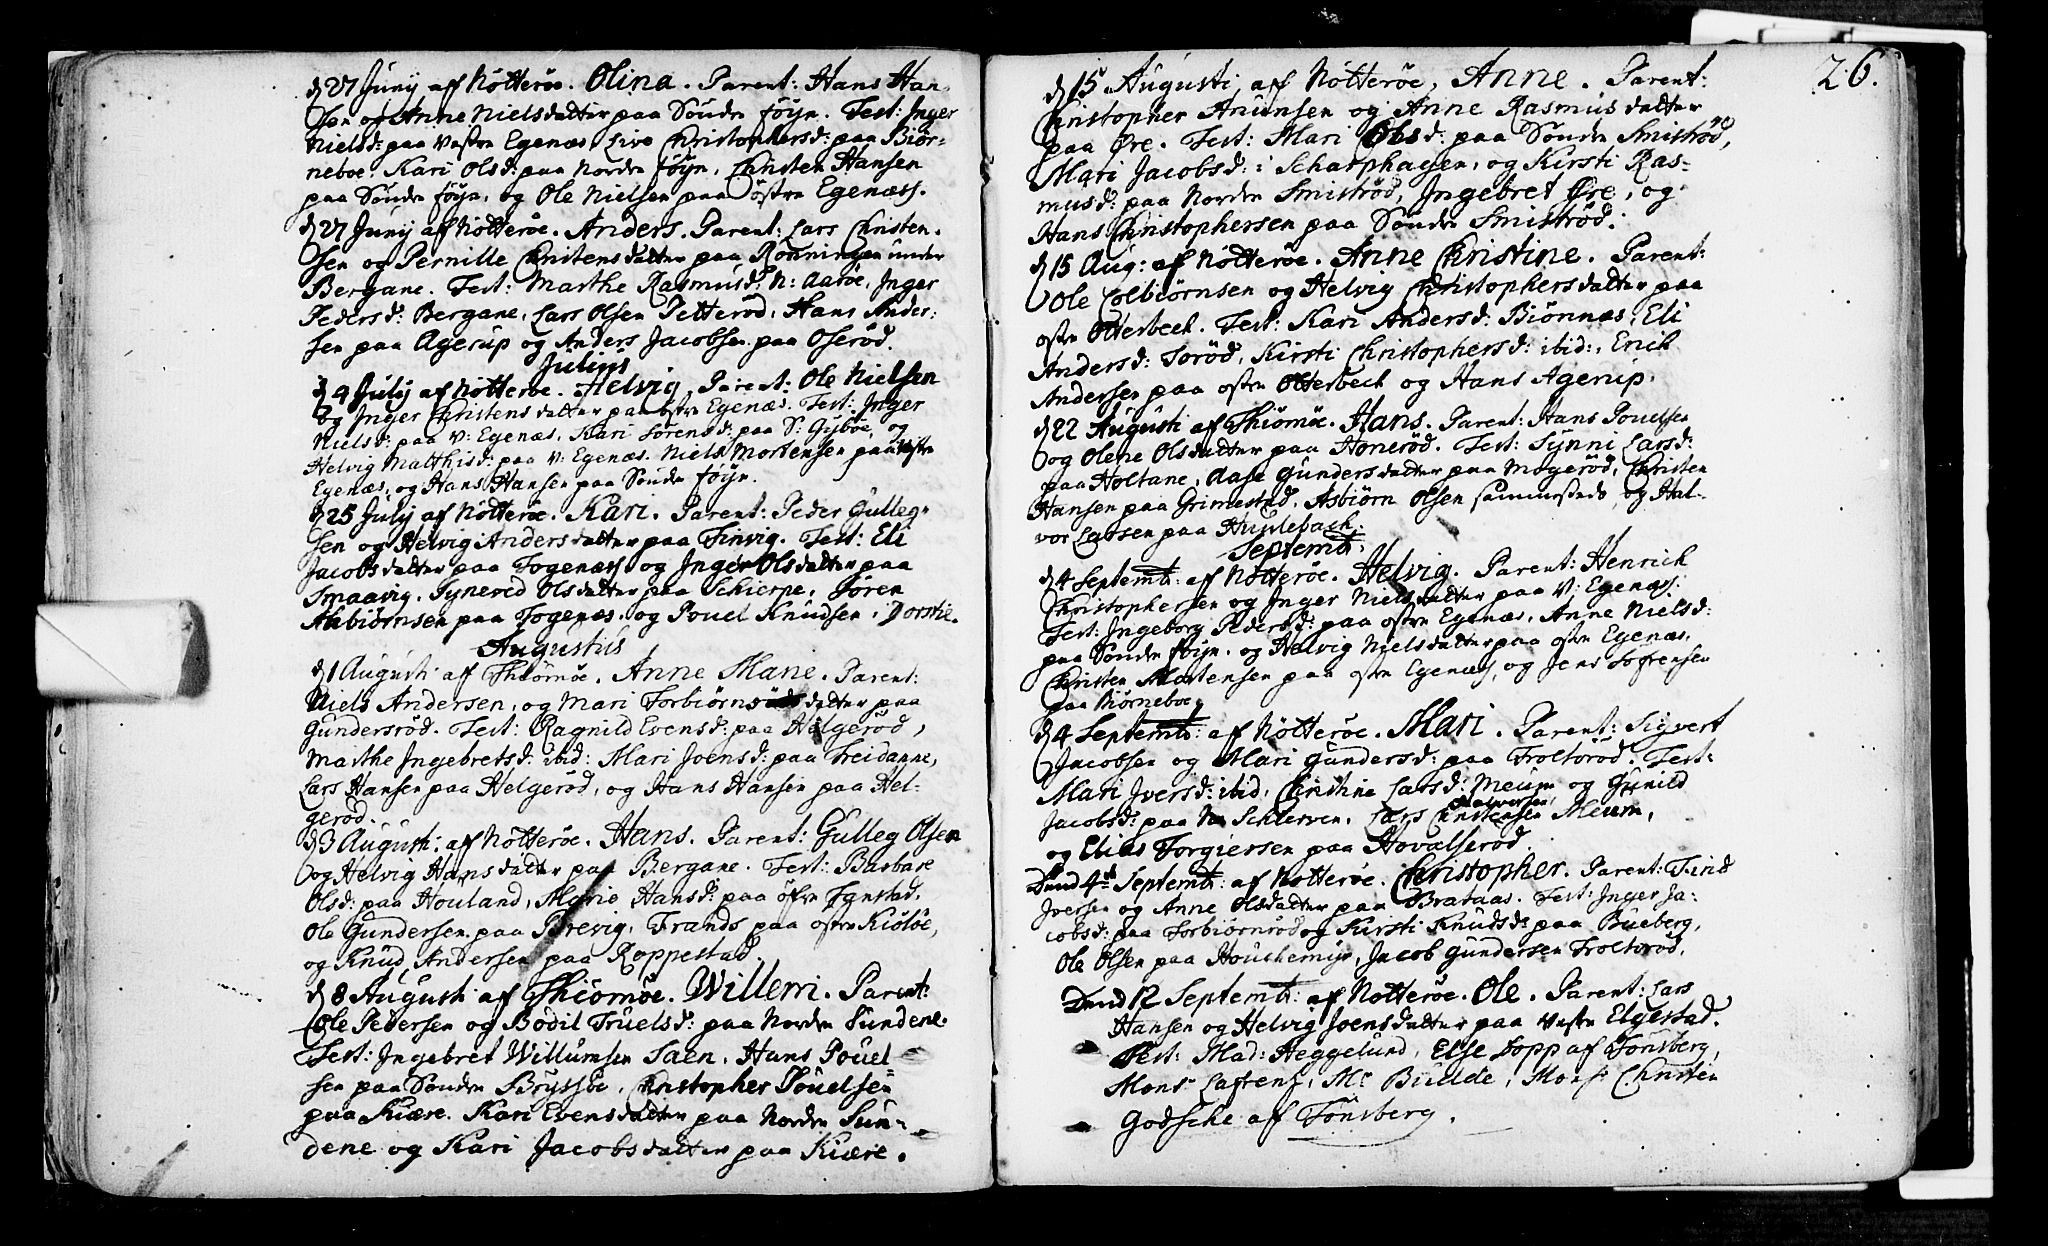 d 27 Junij af Nötteröe. Olina. Parent: Hans Han-
sen og Anne Nielsdatter paa Söndre föyn. Test: Inger
Nielsd: paa Vestre Egenæs, Live Christophersd: paa Biör-
neboe. Kari Olsd: paa Nordre föyn. Christen Hansen
paa Söndre föyn, og Ole Nielsen paa östre Egenæss.
d 27 Junij af Nötteröe. Anders. Parent: Lars Christen-
sen og Pernille Christensdatter paa Rönningen under
Bergane. Test: Marthe Rasmusd: N: Aaröe, Inger
Pedersd: Bergane, Lars Olsen Petteröd, Hans Ander-
sen paa Agerup og Anders Jacobsen paa Oseröd.
Julius
d 4 Julij af Nötteröe. Helvig, Parent: Ole Nielsen
og Inger Christensdatter paa östre Egenæs. Test: Inger
Nielsd: paa V: Egenæs, Kari Sörensd: paa S: Gyböe, og
Helvig Matthisd: paa V: Egenæs. Niels Mortensen paa Vestre
Egenæs, og Hans Hansen paa Söndre föyn.
d 25 Julij af Nötteröe. Kari. Parent: Peder Gulleg-
sen og Helvig Andersdatter paa Finvig. Test: Eli
Jacobsdatter paa Togenæss og Inger Olsdatter paa
Smaavig. Synered Olsdatter paa Schierpe, Sören
Asbiörnsen paa Togenæs, og Pouel Knudsen, Dorstie.
Augustus
d 1 Augusti af Thiömöe. Anne Marie. Parent:
Niels Andersen, og Mari Torbiörnsdatter paa
Gundersröd. Test: Ragnild Evensd: paa Helgeröd,
Marthe Ingebretsd: ibid: Mari Joensd: paa Treidanne,
Lars Hansen paa Helgeröd, og Hans Hansen paa Hel-
geröd.
d 3 Augusti: af Nötteröe. Hans. Parent: Gulleg Olsen
og Helvig Hansdatter paa Bergane. Test: Barbare
Olsd: paa Houland, Marie Hansd: paa öfre Fanstad.
Ole Gundersen paa Brevig, Frands paa östre Kiölöe,
og Knud Andersen paa Roppestad.
d 8 Augusti af Thiömöe. Willem. Parent:
Ole Pedersen og Bodil Truelsd: paa Nordre Sundene.
Test: Ingebret Willumsen Saen. Hans Pouel-
sen paa Söndre Bryssöe, Christopher Pouelsen
paa Kiære. Kari Evensdatter paa Nordre Sun-
dene og Kari Jacobsdatter paa Kiære.
26.
d 15 Augusti, af Nötteröe, Anne. Parent:
Christopher Anunsen og Anne Rasmusdatter
paa Öre. Test: Mari Olsd: paa Söndre Smiströd,
Mari Jacobsd: i Scharphagen, og Kirsti Ras-
musd: paa Nordre Smiströd, Ingebret Öre, og
Hans Christophersen paa Söndre Smiströd.
d 15 Aug: af Nötteröe. Anne Christine. Parent:
Ole Colbiörnsen og Helvig Christophersdatter paa
östre Otterbech. Test: Kari Andersd: Biönnæs, Eli
Andersd: Soröd, Kirsti Christophersd: ibid:, Erich
Andersen paa östre Otterbech og Hans Agerup.
d 22 Augusti af Thiömöe. Hans. Parent: Hans Pouelsen
og Olene Olsdatter paa Honeröd. Test: Synni Larsd:
paa Holtane, Aase Gundersdatter paa Mogeröd, Christen
Hansen paa Grimestad. Asbiörn Olsen sammesteds, og Hal-
vor Larsen paa Hvulebach.
Septemb:
d 4 Septemb: af Nötteröe. Helvig. Parent: Henrich
Christophersen og Inger Nielsdatter paa V: Egenæs.
Test: Ingeborg Pedersd: paa östre Egenæs, Anne Nielsd:
paa Söndre föyn, og Helvig Nielsdatter paa östre Egenæs.
Christen Mortensen paa östre Egenæs, og Jens Sörensen
paa Biörneboe.
d 4 Septemb: af Nötteröe. Mari. Parent: Sigvert
Jacobsen og Mari Gundersd: paa Troltoröd. Test:
Mari Iversd: ibid, Christine Larsd: Meum og Gunild
Jacobsd: paa Schlerven. Lars Christensen Halvorsen Meum,
og Elias Torgiersen paa Hovalseröd.
Dend 4de Septemb: af Nötteröe. Christopher. Parent: Find
Iversen og Anne Olsdatter paa Brataas. Test: Inger Ja-
cobsd: paa Torbiörnröd og Kirsti Knudsd: paa Bueberg,
Ole Olsen paa Houchemyr, Jacob Gundersen Troltoröd.
Dend 12 Septemb: af Nötteröe. Ole. Parent: Lars
Hansen og Helvig Joensdatter paa Vestre Elgestad.
Test: Mad: Heggelund, Else Lopp af Tönsberg,
Monsr Lafrens, Mr Budde, Monsr Christen
Godsche af Tönsberg.